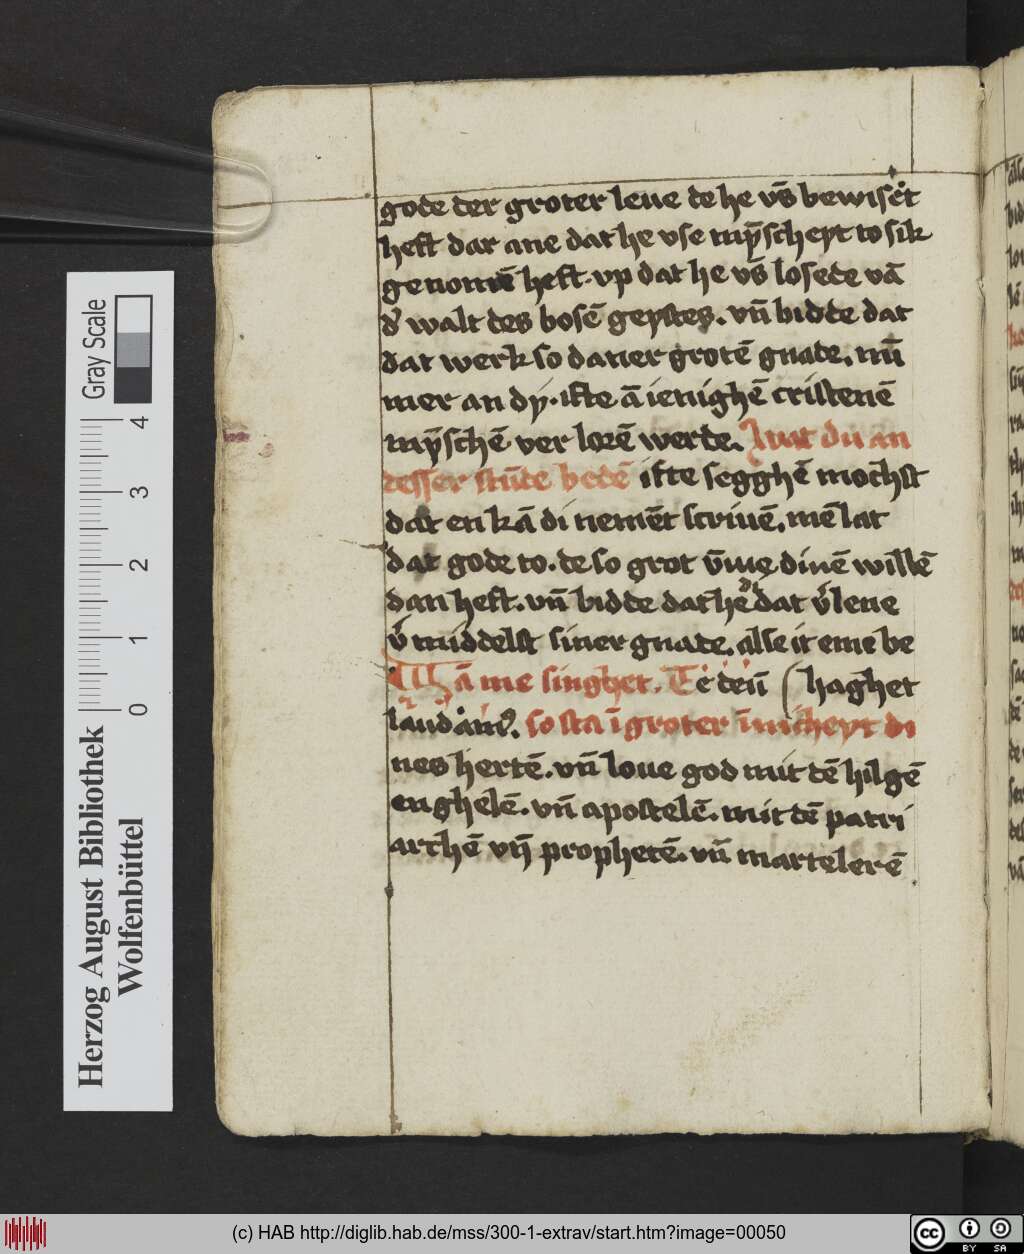 gode der groter leue de he vs̄ bewiset
heft dar ane dat he vse mȳscheyt to sik
genomē heft. vp dat he vs̄ losede vā
d' walt des bosē geystes. vn̄ bidde dat
dat werk so daner grotē gnade. nū
mer an dy. ifte ā ienighē cristenē
mȳschē ver lorē werde. Wat du an
desser stūde bedē ifte segghē mochst
dat en kā di nemēt scriuē. mē lat
dat gode to. de so grot v̄me dinē willē
dan heft. vn̄ bidde dat he dat v'lene
v' middelst siner gnade. alse it eme be
Wā me singhet. Te deū ( haghet
laudam9. so sta ī groter īnicheyt di
nes hertē. vn̄ loue god mit dē hilgē
enghelē. vn̄ apostelē. mit dē patri
archē vn̄ prophetē. vn̄ martelerē
Herzog August Bibliothek
Wolfenbüttel
Gray Scale
0 1 2 3 4
(c) HAB http://diglib.hab.de/mss/300-1-extrav/start.htm?image=00050
cc BY SA